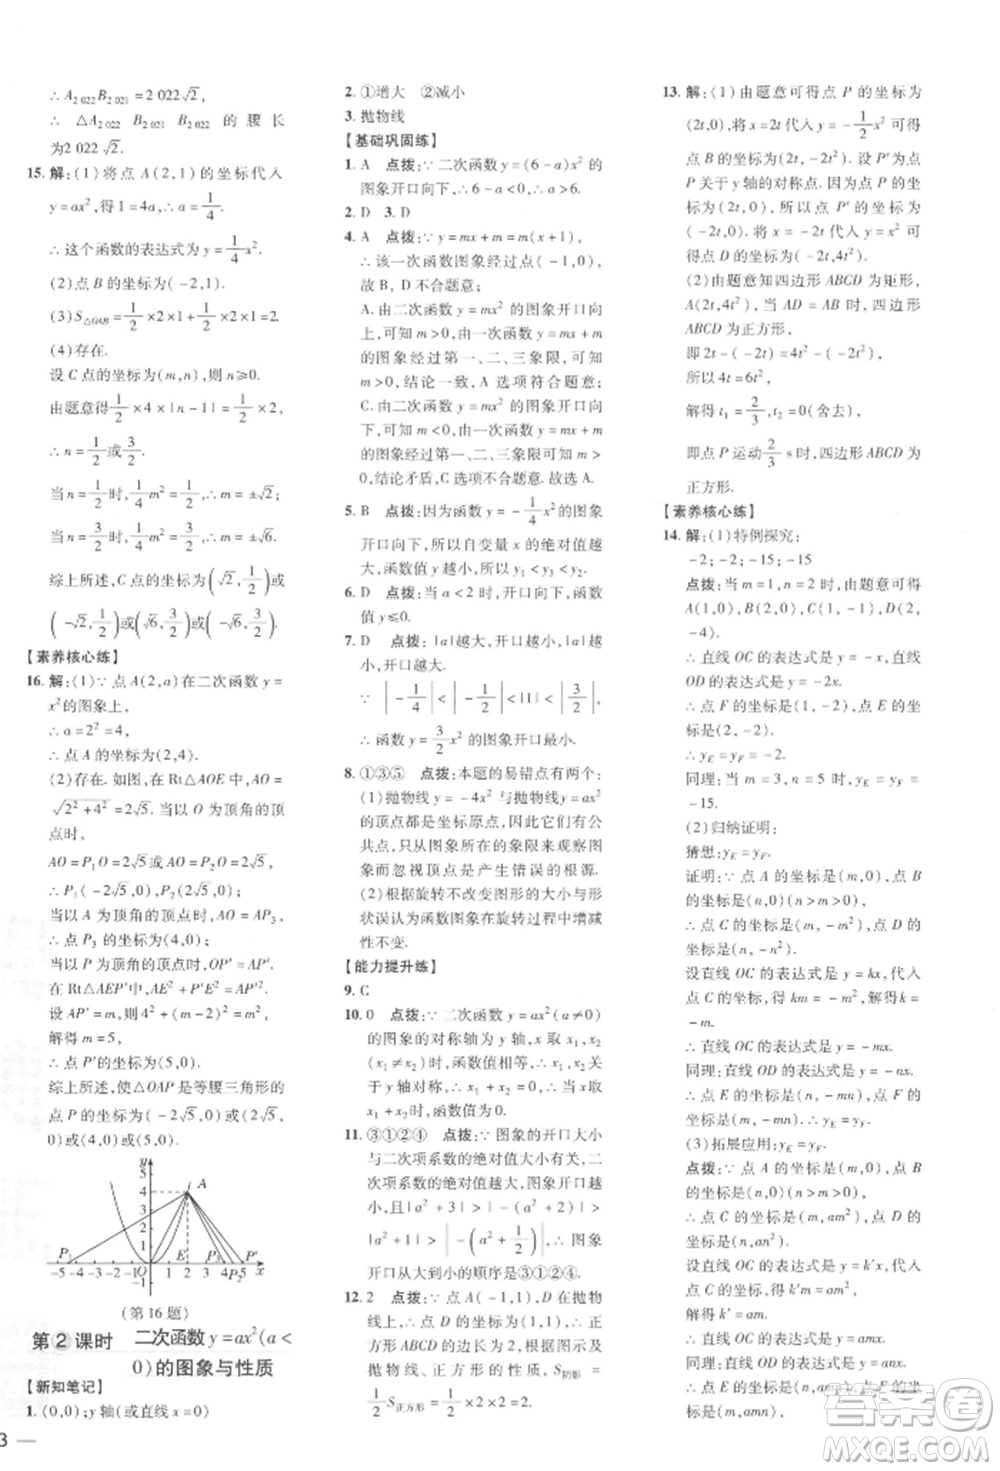 ∴ A₂₀₂₂B₂₀₂₁ = 2 022√2,
∴ △A₂₀₂₂ B₂₀₂₂ B₂₀₂₁ 的腰长
为2 022√2.
15. 解:(1)将点 A(2,1)的坐标代入
y=ax²,得1=4a,∴a=1/4.
∴这个函数的表达式为 y=1/4x².
(2)点 B 的坐标为(-2,1).
(3)S△OAB=1/2×2×1+1/2×2×1=2.
(4)存在.
设 C 点的坐标为(m,n),则 n≥0.
由题意得1/2×4×|n-1|=1/2×2.
∴n=1/2或3/2.
当 n=1/2时,1/4m²=1/2,∴m=±√2.
当 n=3/2时,1/4m²=3/2,∴m=±√6.
综上所述,C 点的坐标为(√2,1/2)或
(-√2,1/2)或(√6,3/2)或(-√6,3/2).
【素养核心练】
16. 解:(1)∵点 A(2,a)在二次函数 y=
x²的图象上,
∴a=2²=4,
∴点 A 的坐标为(2,4).
(2)存在. 如图,在 Rt△AOE 中,AO=
√2²+4²=2√5. 当以 O 为顶角的顶
点时,
AO=P₁O=2√5或 AO=P₂O=2√5,
∴P₁(-2√5,0),P₂(2√5,0);
当以 A 为顶角的顶点时,AO=AP₃,
∴点 P₃ 的坐标为(4,0);
当以 P 为顶角的顶点时,OP'=AP',
在 Rt△AEP'中,AE²+P'E²=AP'².
设 AP'=m,则4²+(m-2)²=m²,
解得 m=5,
∴点 P'的坐标为(5,0).
综上所述,使△OAP 是等腰三角形的
点 P 的坐标为(-2√5,0)或(2√5,
0)或(4,0)或(5,0).
y
5
4
3
2
1
-1
A
P₁
E
P₃
P'
-5 -4 -3 -2 -1 0 1 2 3 4 5 x
P₂
(第16题)
第2课时 二次函数 y=ax²(a<
0)的图象与性质
【新知笔记】
1. (0,0);y 轴(或直线 x=0)
3 —
2. ①增大 ②减小
3. 抛物线
【基础巩固练】
1. A 点拨:∵二次函数 y=(6-a)x²的
图象开口向下,∴6-a<0,∴a>6.
2. D 3. D
4. A 点拨:∵y=mx+m=m(x+1),
∴该一次函数图象经过点(-1,0),
故 B, D 不合题意;
A.由二次函数 y=mx² 的图象开口向
上,可得 m>0,由一次函数 y=mx+m
的图象经过第一、二、三象限,可得
m>0,结论一致,A 选项符合题意;
C.由二次函数 y=mx² 的图象开口向
下,可得 m<0,由一次函数 y=mx+m
的图象经过第一、二、三象限,可得 m>
0,结论矛盾,C 选项不合题意.故选 A.
5. B 点拨:因为函数 y=-1/4x²的图象
开口向下,所以自变量 x 的绝对值越
大,函数值 y 越小,所以 y₁<y₃<y₂.
6. D 点拨:当 a<2 时,∴此时函数
值 y≤0.
7. D 点拨:|a|越大,开口越小,|a|越
小,开口越大.
∵|-1/4|<|-1/2|<|1|<|3/2|,
∴函数 y=3/2x²的图象开口最小.
8. ①③⑤ 点拨:本题的易错点有两个:
(1)抛物线 y=-4x² 与抛物线 y=ax²
的顶点都是坐标原点,它们有公
共点,从图象所在的象限来观察图
象而忽视顶点是产生错误的根源.
(2)根据旋转不改变图形的大小与形
状误认为函数图象在旋转过程中增减
性不变.
【能力提升练】
9. C
10. 0 点拨:∵二次函数 y=ax²(a≠0)
的图象的对称轴为 y 轴,x 取 x₁,x₂
(x₁≠x₂)时,函数值相等,∴x₁,x₂
互为相反数,∴x₁+x₂=0,∴当 x 取
x₁+x₂ 时,函数值为0.
11. ③①②④ 点拨:∵图象的开口大小
与二次项系数的绝对值大小有关,二
次项系数的绝对值越大,图象开口越
小,|a²+3|>|-a²-1|>
|a²+1/2|>|-a²|,∴图象
开口从大到小的顺序是③①②④.
12. 2 点拨:∵点 C(1,1)在抛物
线上,∴1=a×1²,∴a=1.∵正
方形 ABCD 的边长为2,根据图示及
抛物线、正方形的性质,S阴影
=1/2S正方形=1/2×2×2=2.
13. 解:(1)由题意可得点 P 的坐标为
(2t,0),将 x=2t 代入 y=-1/2x²可得
点 B 的坐标为(2t,-2t²).因为 P'与点
P 关于 y 轴的对称点,P 的坐标为
(2t,0),所以点 P'的坐标为
(-2t,0),将 x=-2t 代入 y=x²可得
点 C 的坐标为(-2t,4t²).
(2)由题意知四边形 ABCD 为矩形,
∴当 AD=AB 时,四边形
ABCD 为正方形,
即 2t-(-2t)=4t²-(-2t²),
所以 4t=6t²,
解得 t₁=2/3,t₂=0(舍去),
即点 P 运动2/3 s时,四边形 ABCD 为
正方形.
【素养核心练】
14. 解:(1)特例探究:
-2;-2;-15;-15
点拨:当 m=1,n=2 时,由题意可得
A(1,0),B(2,0),C(1,-1),D(2,
-4).
∴直线 OC 的表达式为 y=-x,直线
OD 的表达式是 y=-2x.
∴点 F 的坐标是(1,-2),点 E 的坐
标是(2,-2).∴yE=yF=-2.
同理:当 m=3,n=5 时,yE=yF=
-15.
(2)归纳证明:
猜想:yE=yF
证明:∵点 A 的坐标是(m,0),点 B
的坐标是(n,0)(n>m>0),
∴点 C 的坐标是(m,-m²),点 D 的
坐标是(n,-n²).
设直线 OC 的表达式是 y=kx,代入
C(m,-m²),得 km=-m²,解得 k=
-m.
∴直线 OC 的表达式是 y=-mx.
同理:直线 OD 的表达式是 y=-nx.
∴点 E 的坐标是(n,-mn),点 F 的
坐标是(m,-mn).∴yE=yF.
(3)拓展应用:yE=yF
点拨:∵点 A 的坐标是(m,0),点 B
的坐标是(n,0)(n>m>0),
∴点 C 的坐标是(m,am²),点 D 的坐
标是(n,an²).
设直线 OC 的表达式是 y=k'x,代入
C(m,am²),得 k'm=am²,
解得 k'=am.
∴直线 OC 的表达式是 y=amx.
同理:直线 OD 的表达式是 y=anx.
∴点 E 的坐标是(n,amn),点 F 的坐
标是(m,amn),∴yE=
答案圈
MXQE.COM